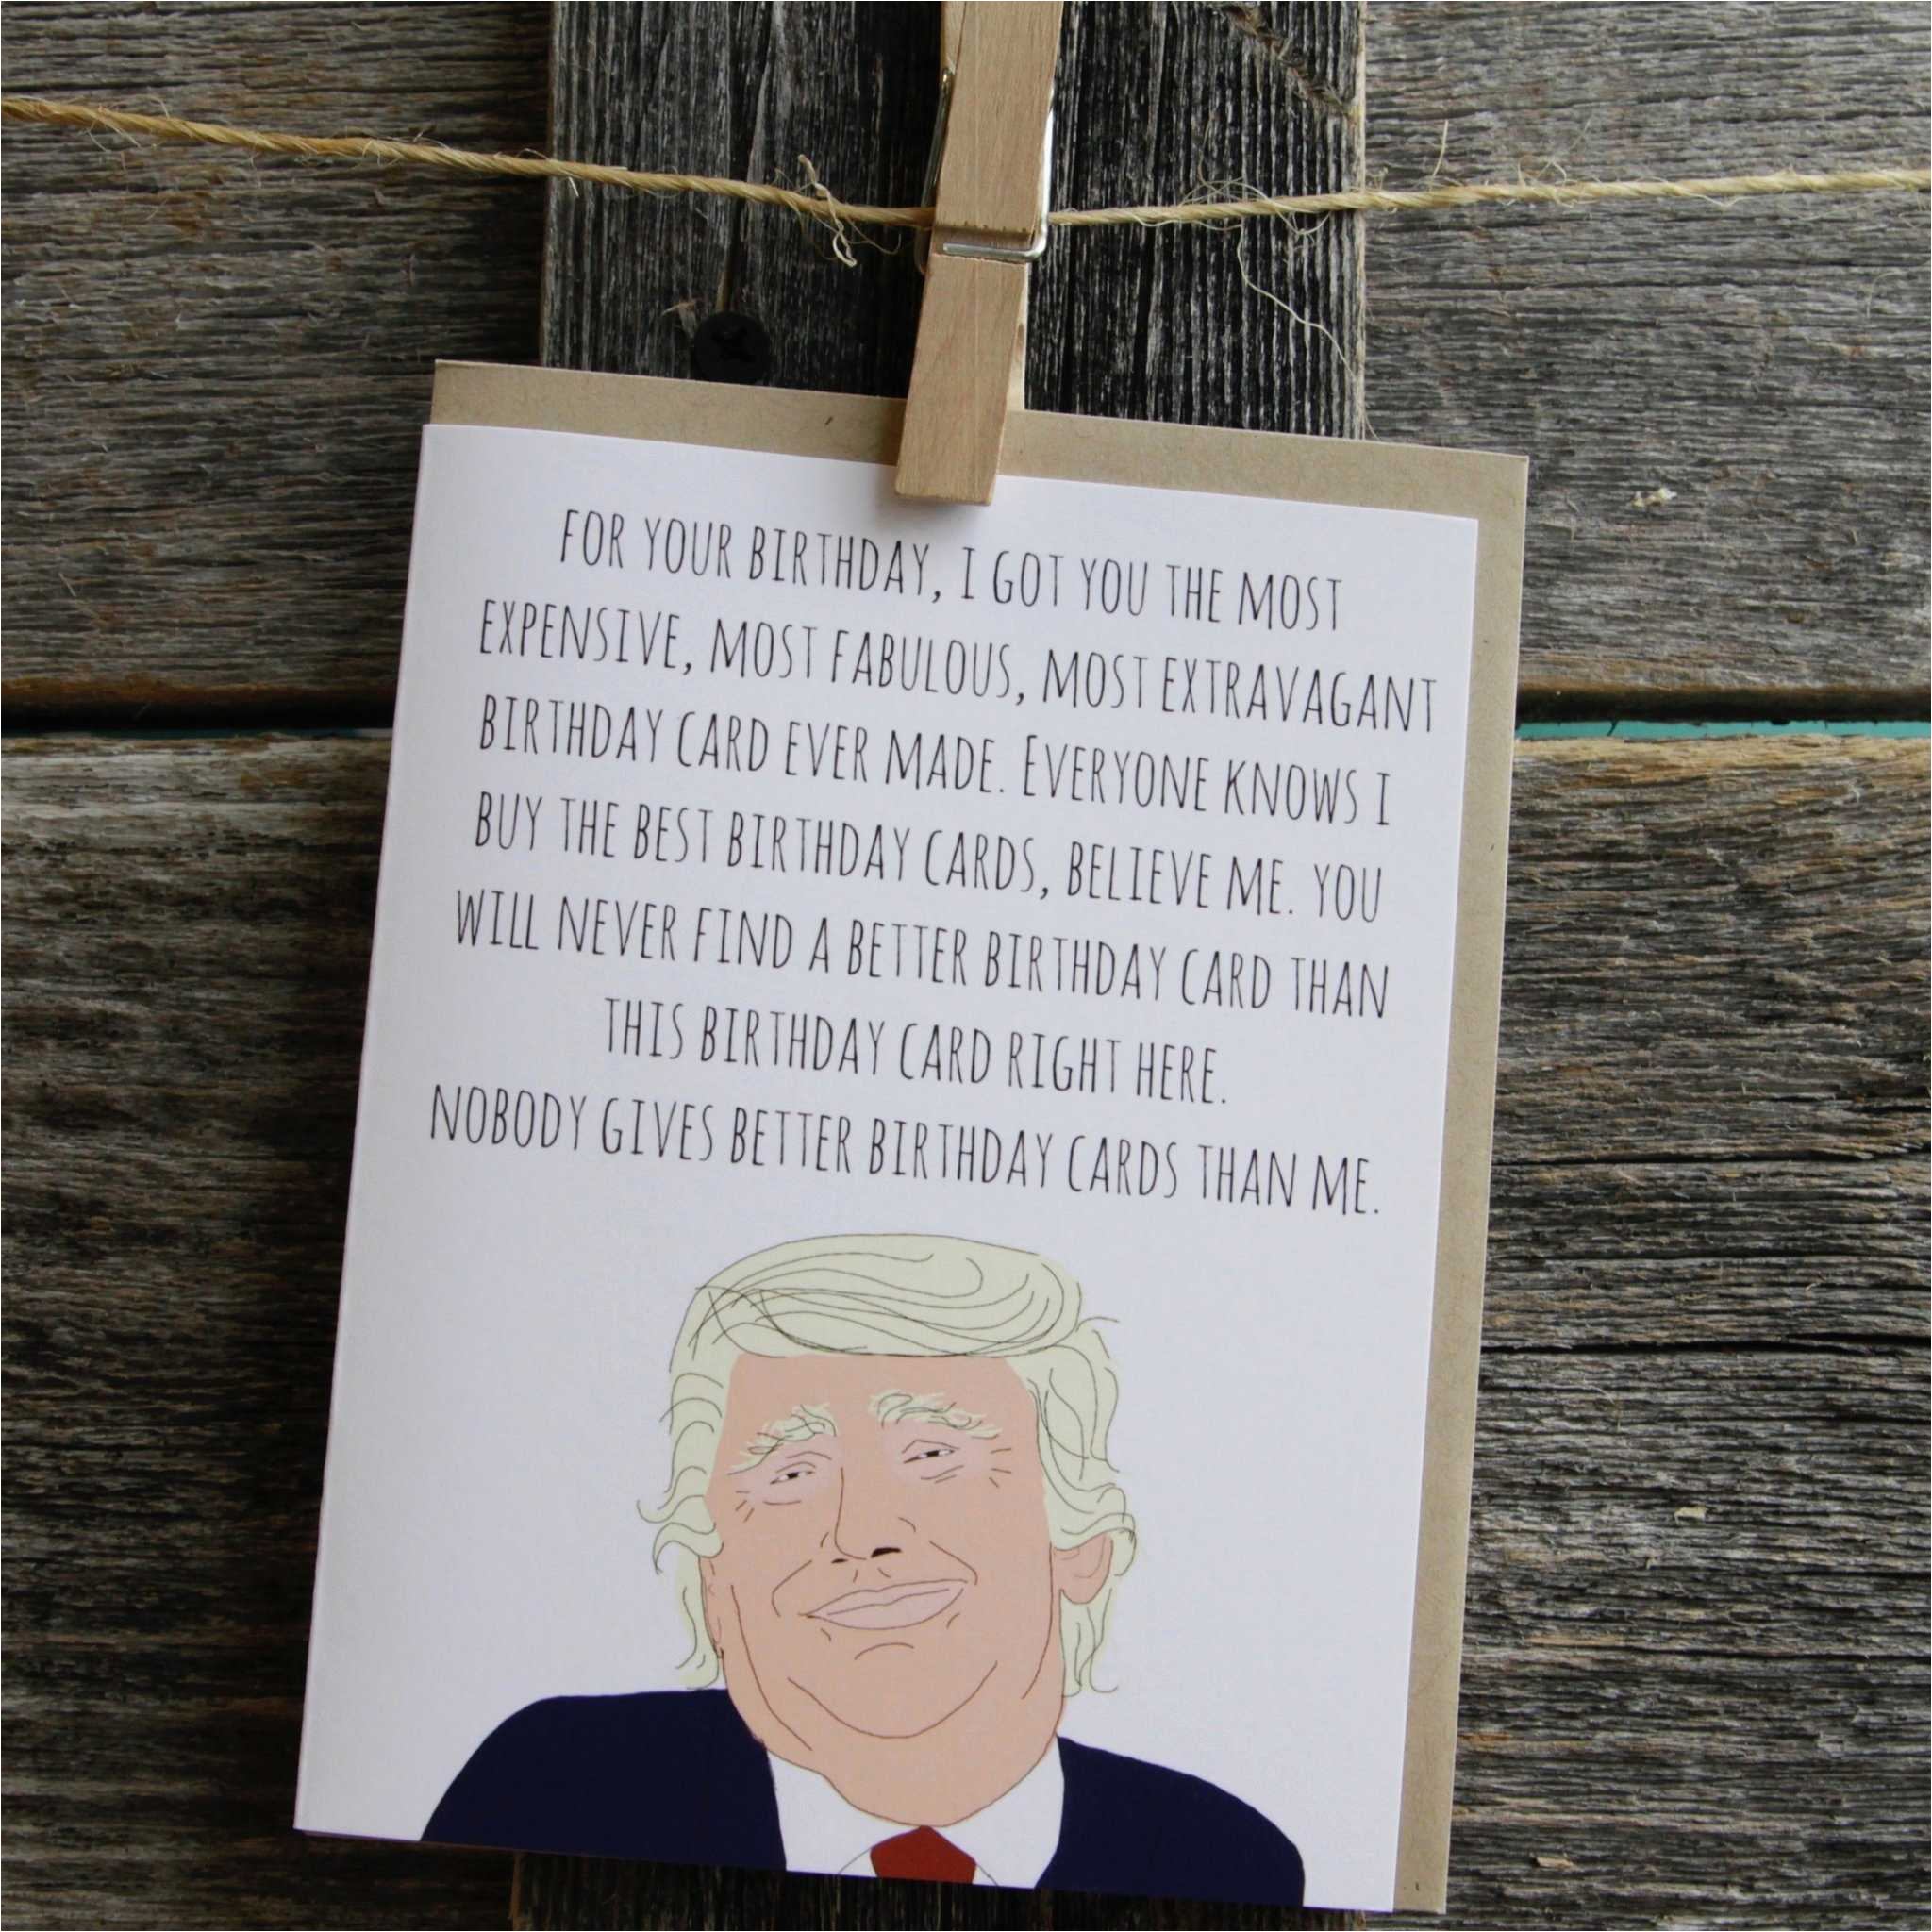 FOR YOUR BIRTHDAY, I GOT YOU THE MOST
EXPENSIVE, MOST FABULOUS, MOST EXTRAVAGANT
BIRTHDAY CARD EVER MADE. EVERYONE KNOWS I
BUY THE BEST BIRTHDAY CARDS, BELIEVE ME. YOU
WILL NEVER FIND A BETTER BIRTHDAY CARD THAN
THIS BIRTHDAY CARD RIGHT HERE.
NOBODY GIVES BETTER BIRTHDAY CARDS THAN ME.